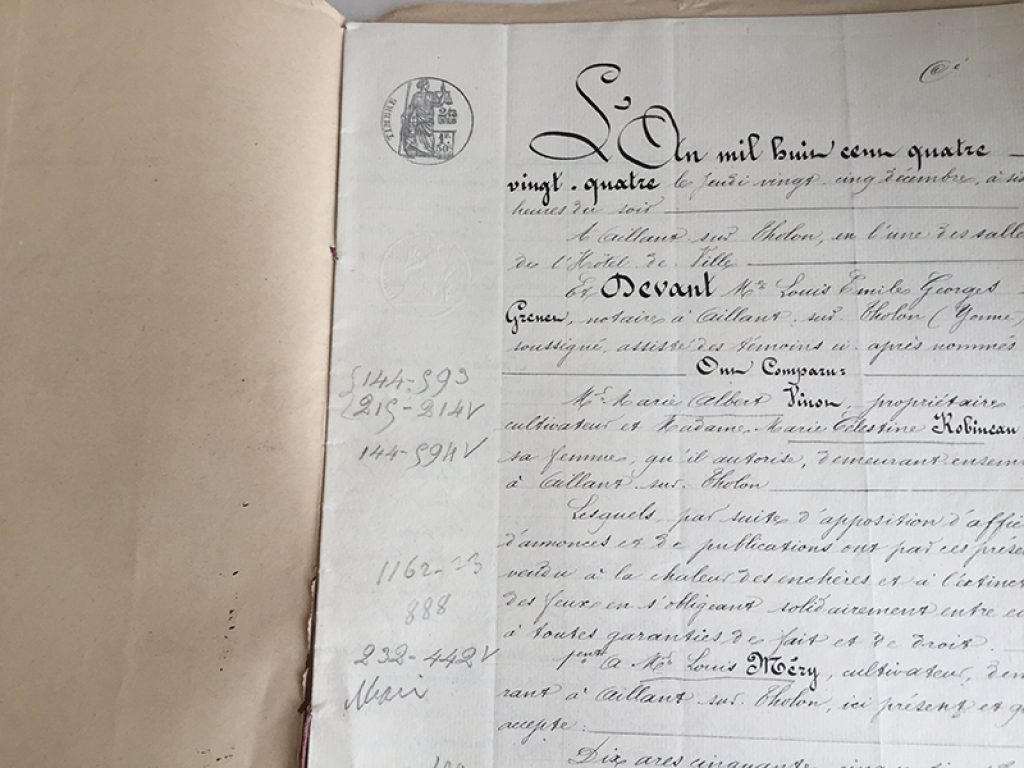 TIMBRE
L'An mil huit cent quatre
vingt-quatre le jeudi vingt-cinq décembre, à six
heures du soir
A Aillant-sur-Tholon, en l'une des salle
de l'Hôtel de Ville
Et Devant Me Louis Emile Georges
notaire à Aillant-sur-Tholon (Yonne)
soussigné, assisté des témoins ci-après nommés
Ont Comparu:
Mr Marie Albert Vinot, propriétaire
cultivateur et Madame Marie Célestine Robineau
sa femme, qu'il autorise, demeurant ensem
à Aillant-sur-Tholon
Lesquels, par suite d'apposition d'affic
d'annonces et de publications ont par ces prése
vendu à la chaleur des enchères et à l'extinct
des feux en s'obligeant solidairement entre eu
à toutes garanties de fait et de droit.
1ent A Mr Louis Méry, cultivateur, dem
rant à Aillant-sur-Tholon, ici présent et q
accepte:
Dix ares cinquante
144-593
215-214V
144-594V
888
232-442V